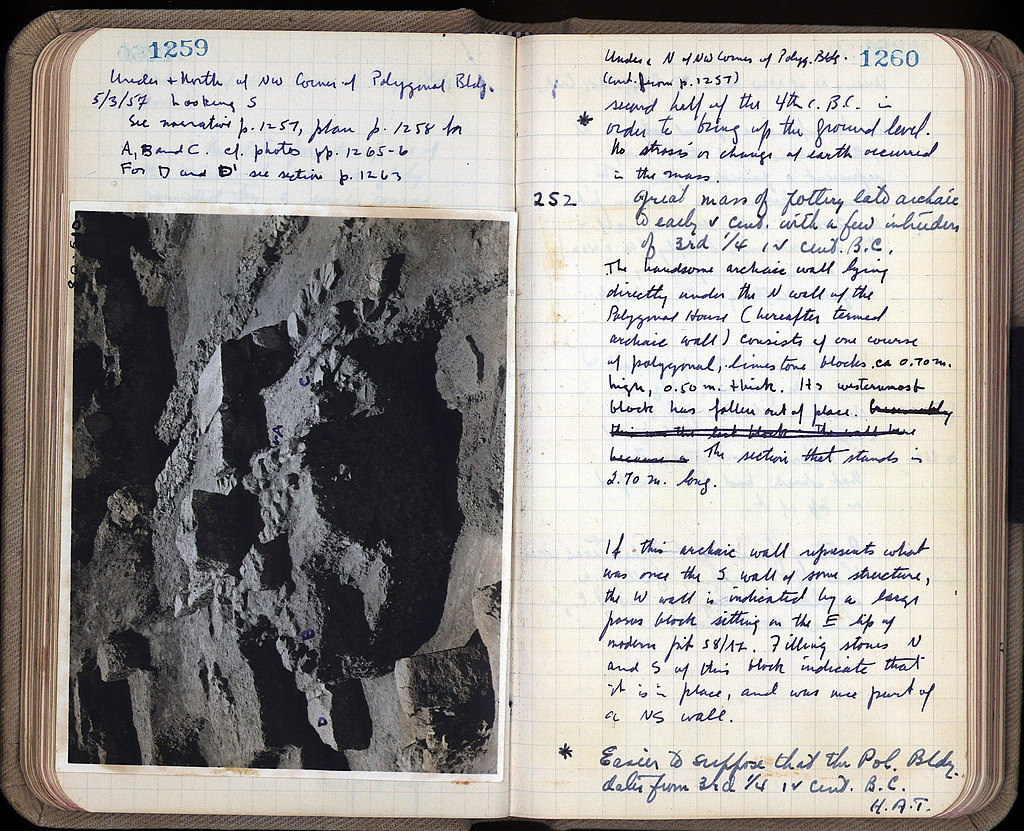 1259
Under + North of NW Corner of Polygonal Bldg.
5/3/57 Looking S
See narrative p. 1257, plan p. 1258 for
A, B and C. cf. photos pp. 1265-6
For D and D' see section p. 1263
C
A
B
D
1260
Under & N of NW Corner of Polyg. Bldg.
(cont. from p. 1257)
second half of the 4th c. B.C. in
* order to bring up the ground level.
No strosis or change of earth occurred
in the mass.
252 Great mass of pottery late archaic
to early V cent. with a few intruders
of 3rd 1/4 IV cent. B.C.
The handsome archaic wall lying
directly under the N wall of the
Polygonal House (hereafter termed
archaic wall) consists of one course
of polygonal, limestone blocks, ca 0.70 m.
high, 0.50 m. thick. Its westernmost
block has fallen out of place. Presumably
this was the last block in the wall here
because a The section that stands is
2.70 m. long.
If this archaic wall represents what
was once the S wall of some structure,
the W wall is indicated by a large
poros block sitting on the E lip of
modern pit 58/ΙΖ. Filling stones N
and S of this block indicate that
it is in place, and was once part of
a NS wall.
* Easier to suppose that the Pol. Bldg.
dates from 3rd 1/4 IV cent. B.C.
H.A.T.